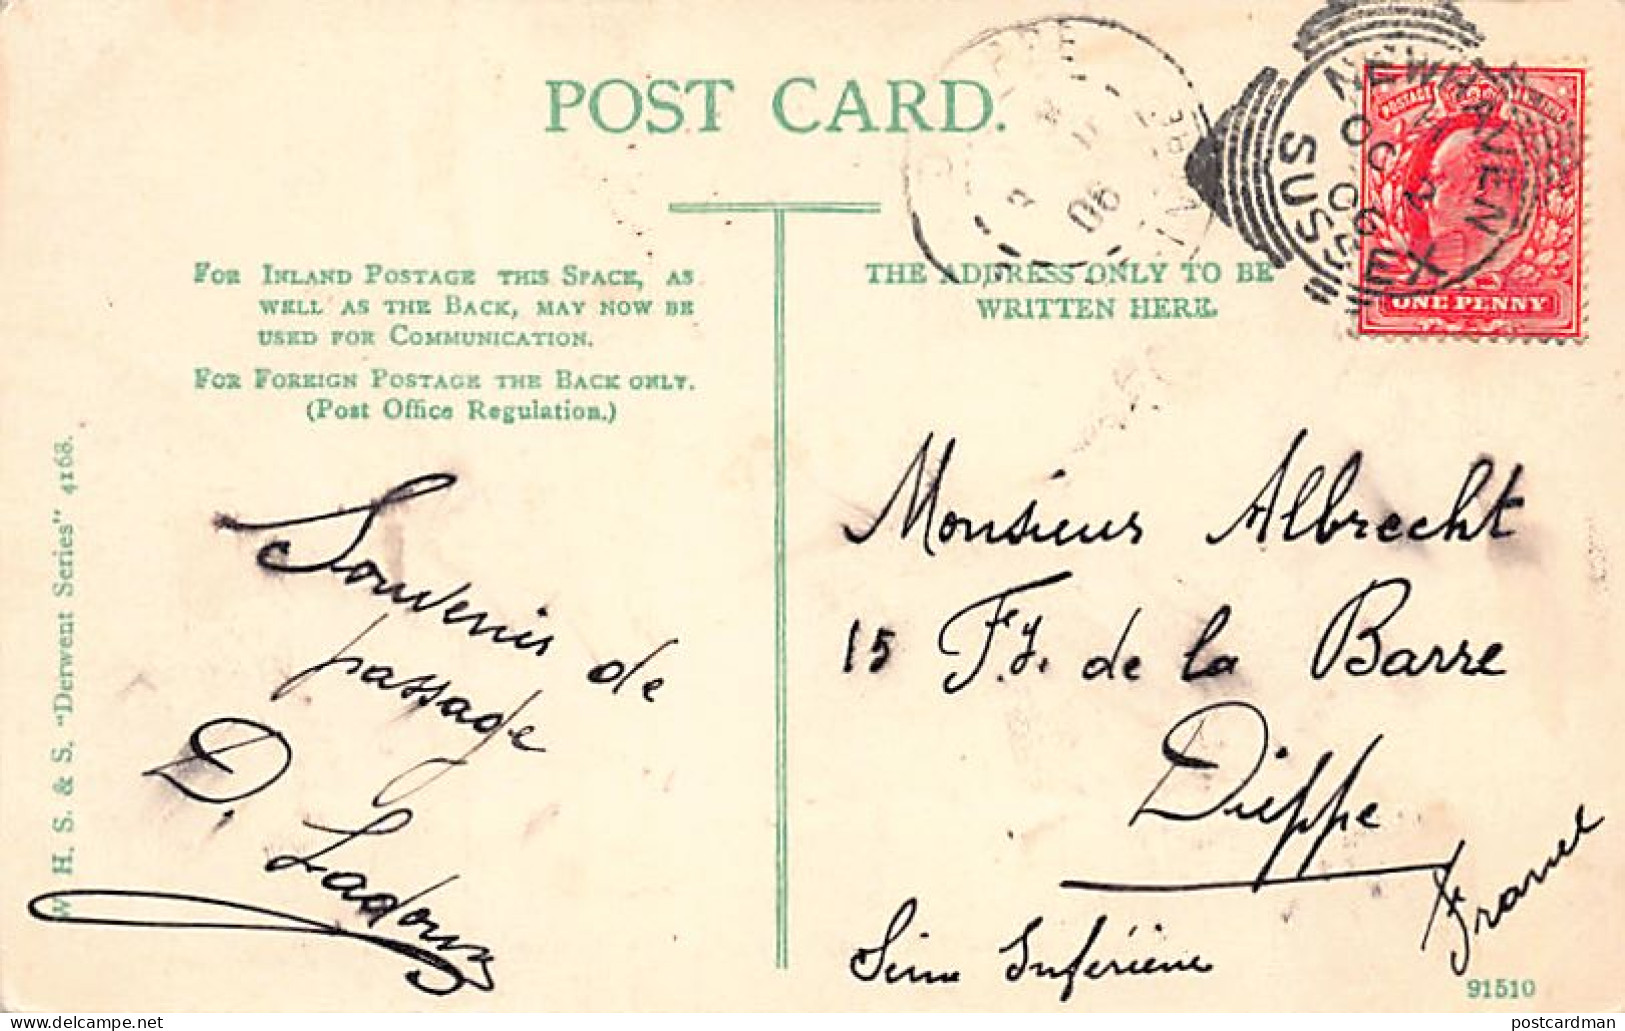 POST CARD.
FOR INLAND POSTAGE THIS SPACE, AS
WELL AS THE BACK, MAY NOW BE
USED FOR COMMUNICATION.
FOR FOREIGN POSTAGE THE BACK ONLY.
(Post Office Regulation.)
THE ADDRESS ONLY TO BE
WRITTEN HERE.
NEWHAVEN
OC 2
06
SUSSEX
POSTAGE
ONE PENNY
06
W. H. S. & S. "Derwent Series" 4168.
Souvenir de
passage
D. Ladoux
Monsieur Albrecht
15 F.g. de la Barre
Dieppe
France
Seine Inférieure
91510
postcardman